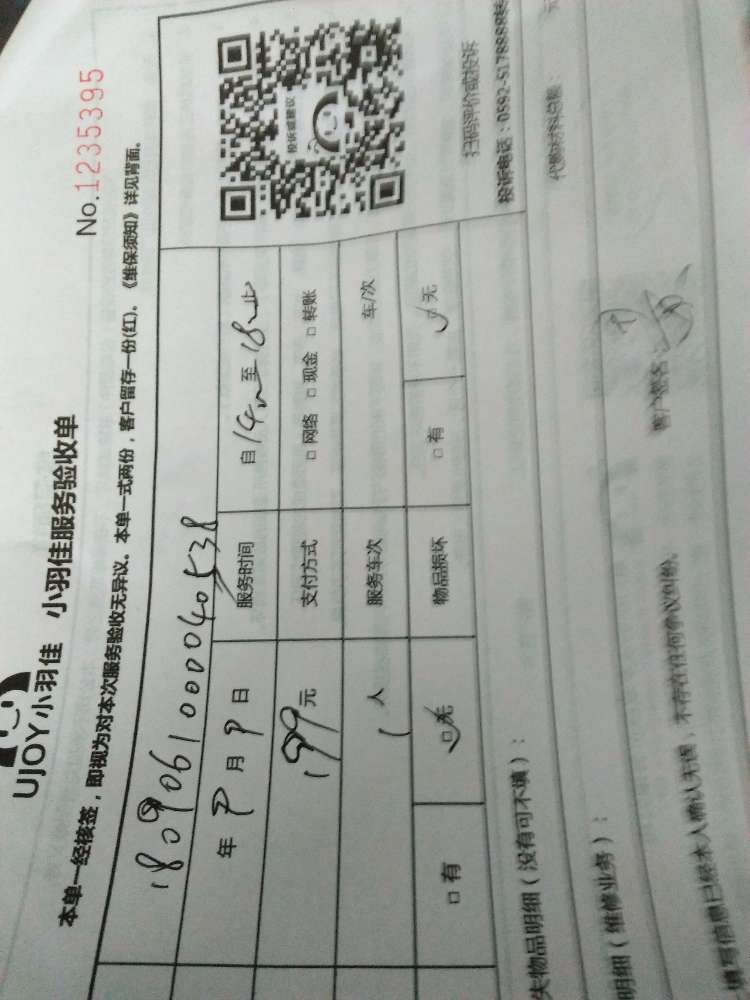 UJOY小羽佳 小羽佳服务验收单
No.1235395
本单一经核签，即视为对本次服务验收无异议。本单一式两份，客户留存一份(红)。《维保须知》详见背面。
180906100040538
年 9 月 9 日 服务时间 自 14 至 18 止
199 元 支付方式 □ 网络 □ 现金 □ 转账
1 人 服务车次 车/次
□ 有 □ 无 物品损坏 □ 有 □ 无
投诉或建议
扫码评价或投诉
投诉电话：0592-5178888
失物品明细（没有可不填）：
代购材料总额： 元
明细（维修业务）：
客户签名：
填写信息已经本人确认无误，不存在任何争议纠纷。